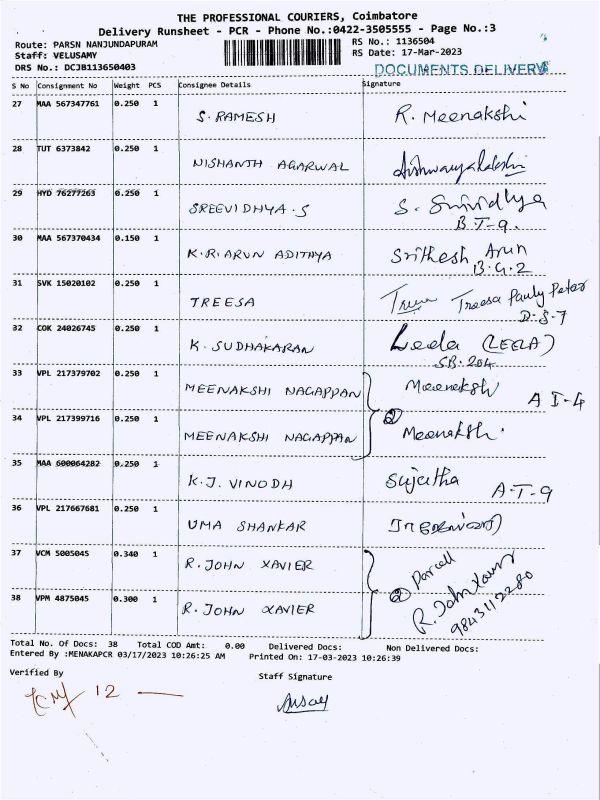 THE PROFESSIONAL COURIERS, Coimbatore
Delivery Runsheet - PCR - Phone No.:0422-3505555 - Page No.:3
Route: PARSN NANJUNDAPURAM
RS No.: 1136504
Staff: VELUSAMY
RS Date: 17-Mar-2023
DRS No.: DCJB113650403
DOCUMENTS DELIVERY
S No Consignment No Weight PCS Consignee Details Signature
27 MAA 567347761 0.250 1 S. RAMESH R. Meenakshi
28 TUT 6373842 0.250 1 NISHANTH AGARWAL
29 HYD 76277263 0.250 1 SREEVIDHYA.S S. Srividhya
B T-9.
30 MAA 567370434 0.150 1 K.R. ARUN ADITHYA Srithesh Arun
B.G.2
31 SVK 15020102 0.250 1 TREESA Treesa Pauly Peter
D-S-7
32 COK 24026745 0.250 1 K. SUDHAKARAN Leela (LEELA)
SB.204
33 VPL 217379702 1 MEENAKSHI NAGAPPAN Meenakshi A I-4
34 VPL 217399716 0.250 1 MEENAKSHI NAGAPPAN ② Meenakshi.
35 MAA 600064282 0.250 1 K.J. VINODH Sujatha A-T-9
36 VPL 217667681 0.250 1 UMA SHANKAR
37 VCM 5005045 0.340 1 R. JOHN XAVIER ② Parcell
38 VPM 4875045 0.300 1 R. JOHN XAVIER R. John Xavier
9843112280
Total No. Of Docs: 38 Total COD Amt: 0.00 Delivered Docs: Non Delivered Docs:
Entered By :MENAKAPCR 03/17/2023 10:26:25 AM Printed On: 17-03-2023 10:26:39
Verified By
Staff Signature
12